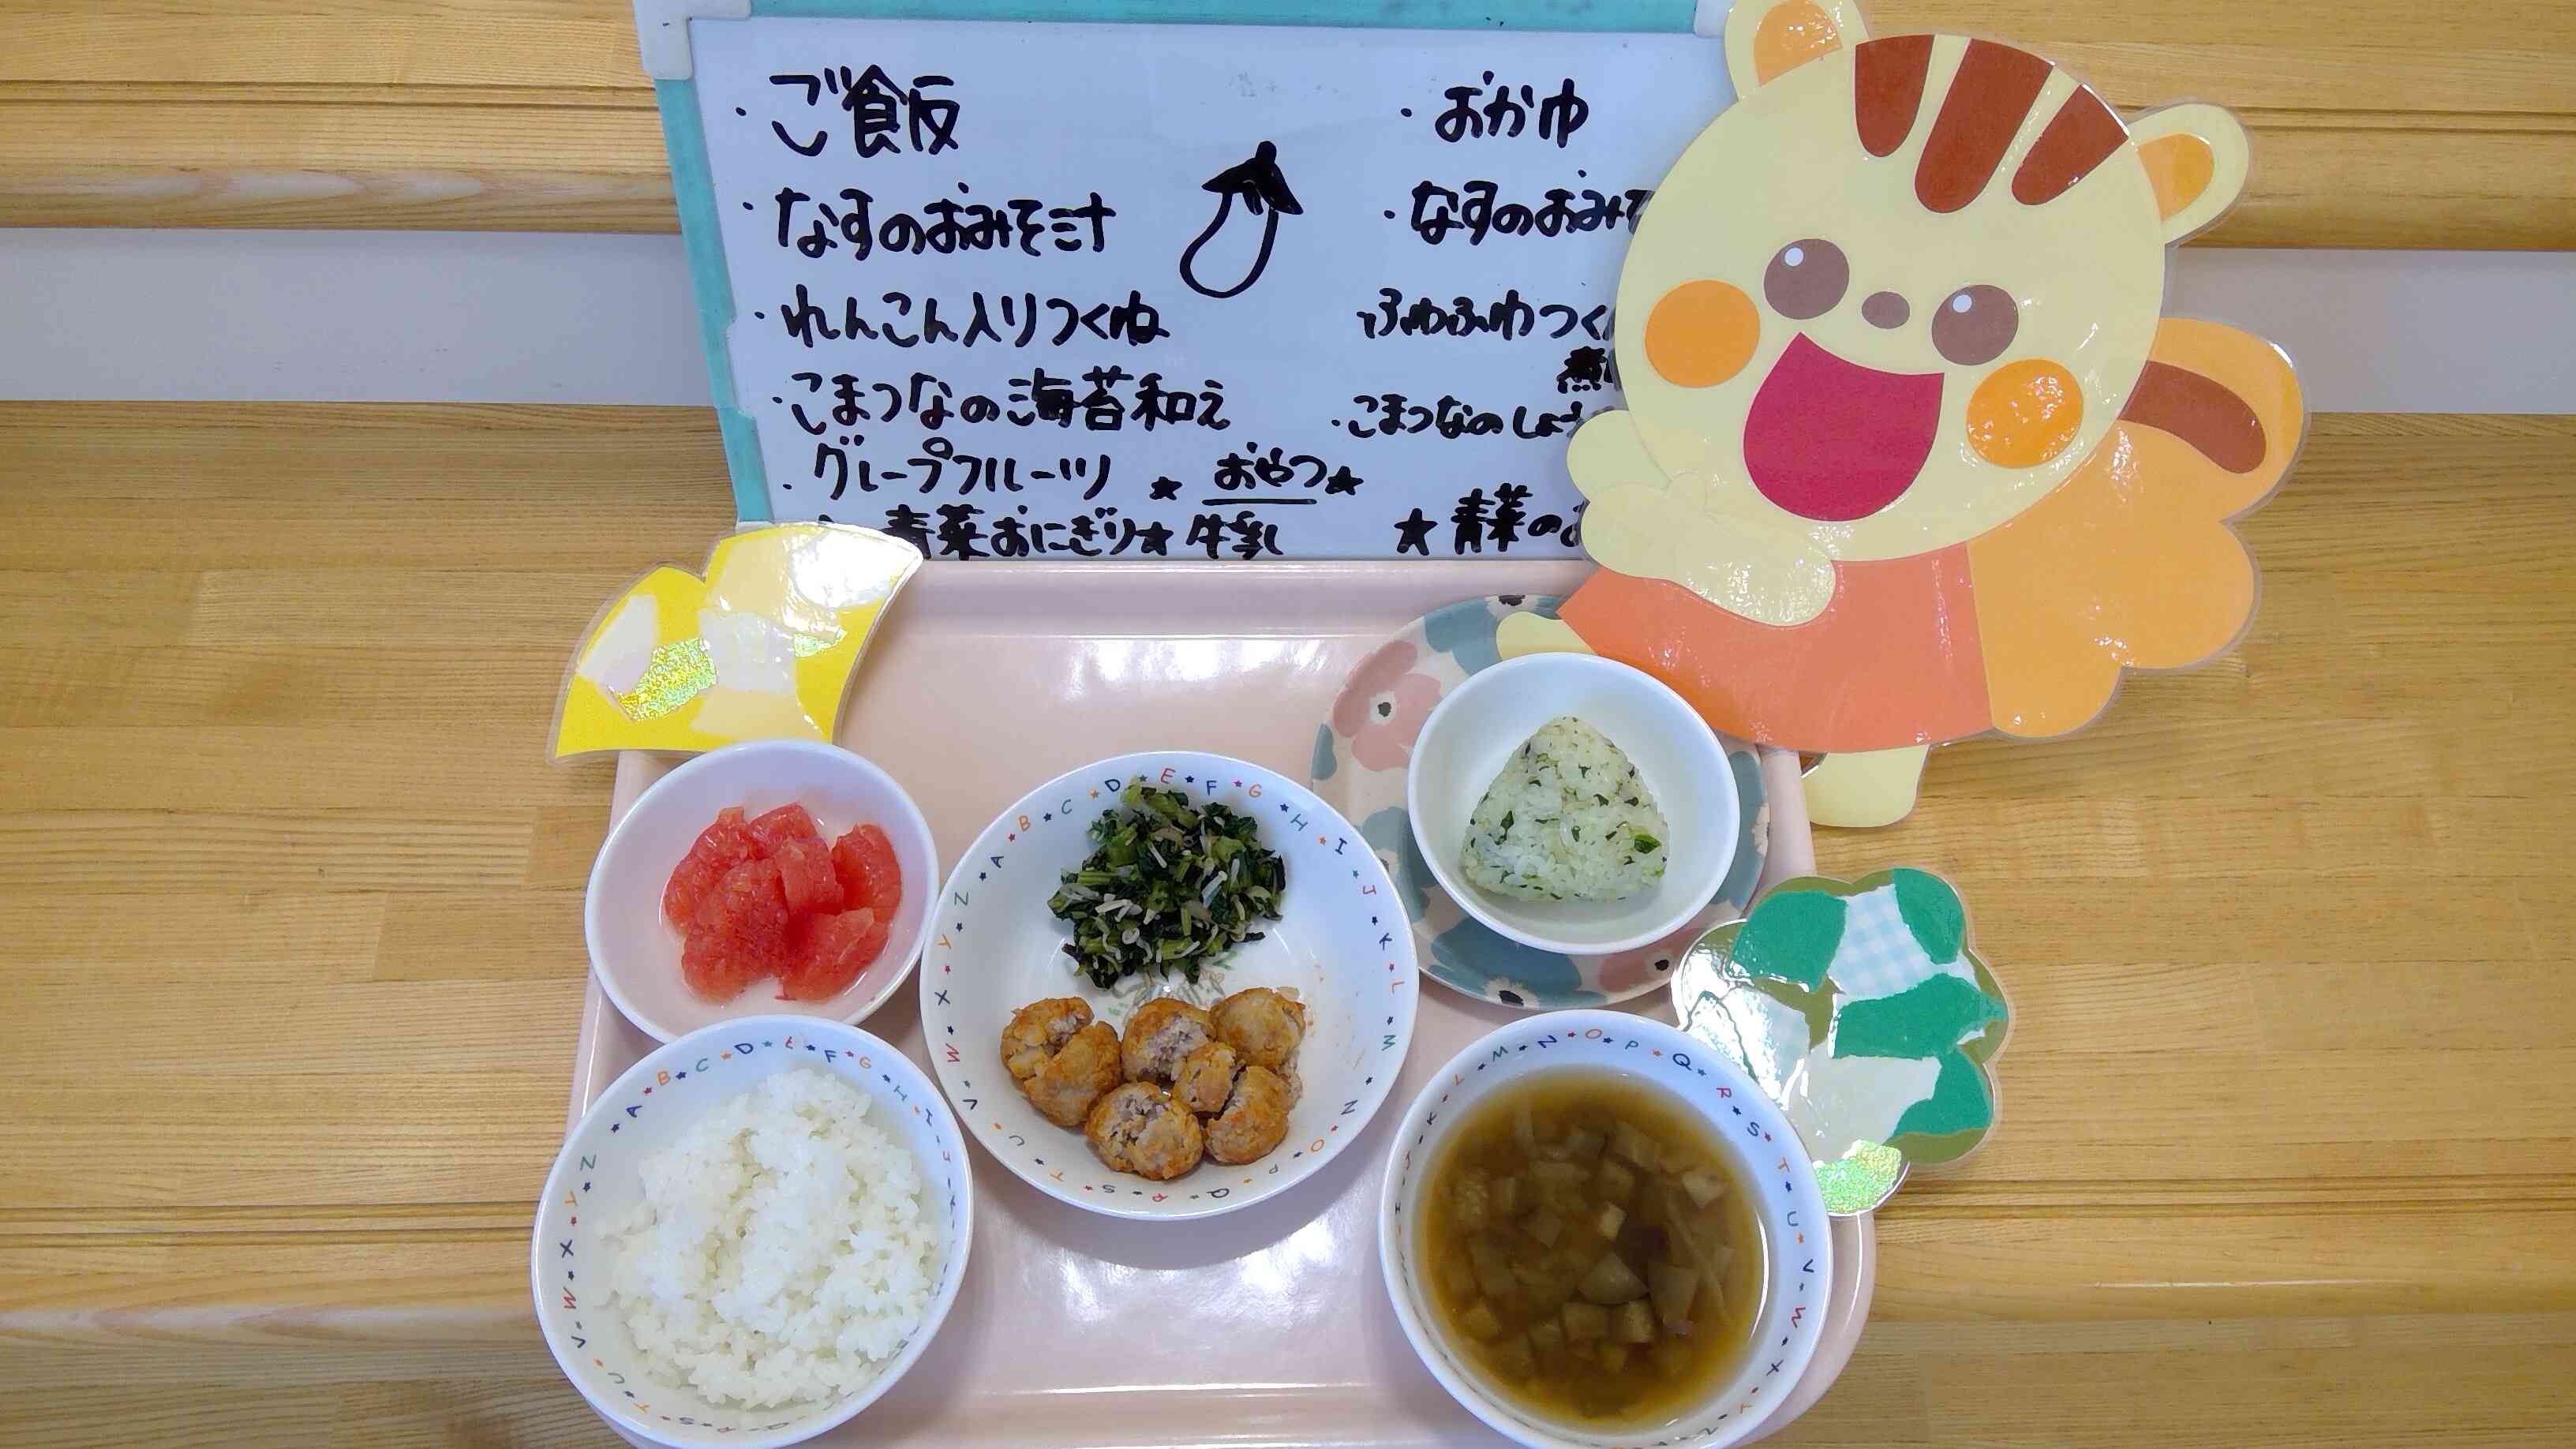 ・ご飯
・なすのおみそ汁
・れんこん入りつくね
・こまつなの海苔和え
・グレープフルーツ
★おやつ★
青菜おにぎり★牛乳
・おかゆ
・なすのおみそ
ふわふわつく
煮
・こまつなのしょう
★青菜のお
A B C D E F G H I J K L M N O P Q R S T U V W X Y Z
A B C D E F G H I J K T U V W X Y Z
J K L M N O P Q R S T U V W X Y Z